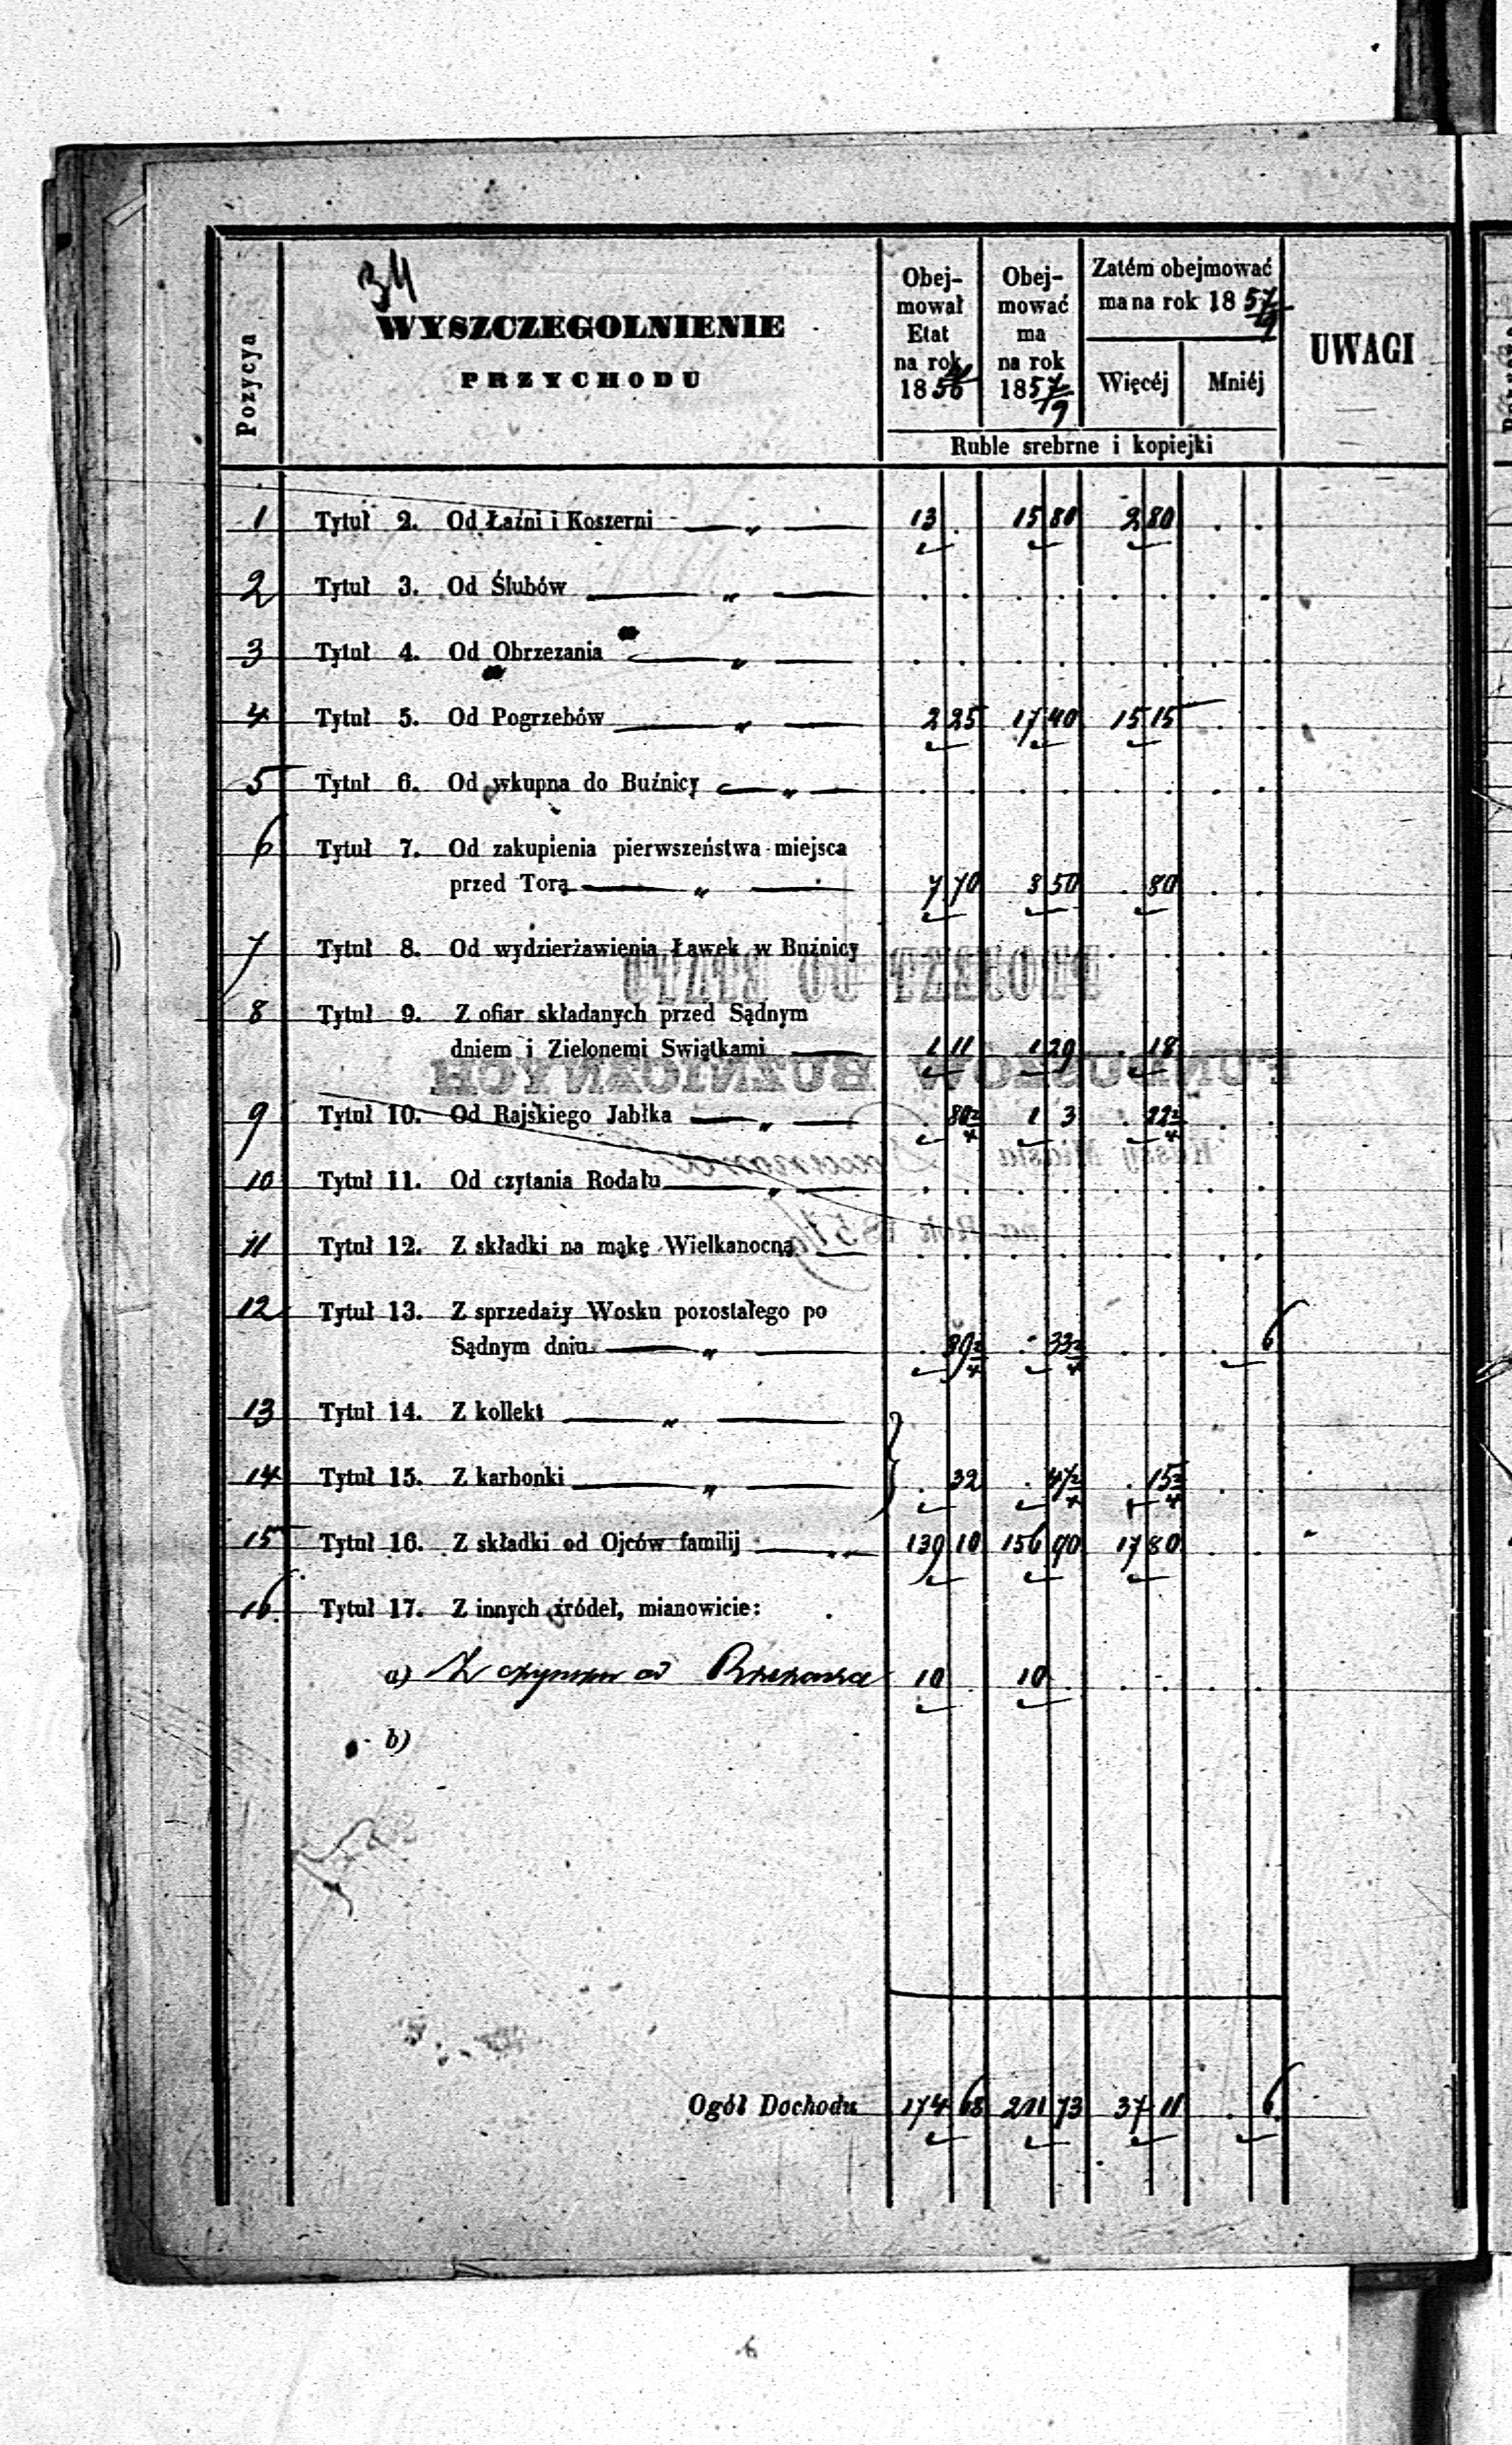 34
Pozycya
WYSZCZEGOLNIENIE
PRZYCHODU
Obej-
mował
Etat
na rok
1856
Obej-
mować
ma
na rok
1857/9
Zatém obejmować
ma na rok 1857/9
Więcéj Mniéj
UWAGI
Ruble srebrne i kopiejki
1 Tytuł 2. Od Łaźni i Koszerni — „ — 13 . 15 80 2 80 . .
2 Tytuł 3. Od Ślubów — „ — . . . . . . . .
3 Tytuł 4. Od Obrzezania — „ — . . . . . . . .
4 Tytuł 5. Od Pogrzebów — „ — 2 25 17 40 15 15 . .
5 Tytuł 6. Od wkupna do Buźnicy — „ — . . . . . . . .
6 Tytuł 7. Od zakupienia pierwszeństwa miejsca
przed Torą — „ — 7 70 8 50 . 80 . .
7 Tytuł 8. Od wydzierżawienia Ławek w Buźnicy
8 Tytuł 9. Z ofiar składanych przed Sądnym
dniem i Zielonemi Swiątkami — 1 11 1 29 . 18 . .
9 Tytuł 10. Od Rajskiego Jabłka — „ — . 80 2/4 1 3 . 22 2/4 . .
10 Tytuł 11. Od czytania Rodału — „ — . . . . . . . .
11 Tytuł 12. Z składki na mąkę Wielkanocną — . . . . . . . .
12 Tytuł 13. Z sprzedaży Wosku pozostałego po
Sądnym dniu — „ — . 39 2/4 . 33 2/4 . . . 6
13 Tytuł 14. Z kollekt — „ —
14 Tytuł 15. Z karbonki — „ — . 32 . 47 2/4 . 15 2/4 . .
15 Tytuł 16. Z składki od Ojców familij — „ — 139 10 156 90 17 80 . .
16 Tytuł 17. Z innych źródeł, mianowicie:
a) Z czynszu od Rzezaka 10 . 10 . . . . .
b)
Ogół Dochodu 174 68 211 73 37 11 . 6